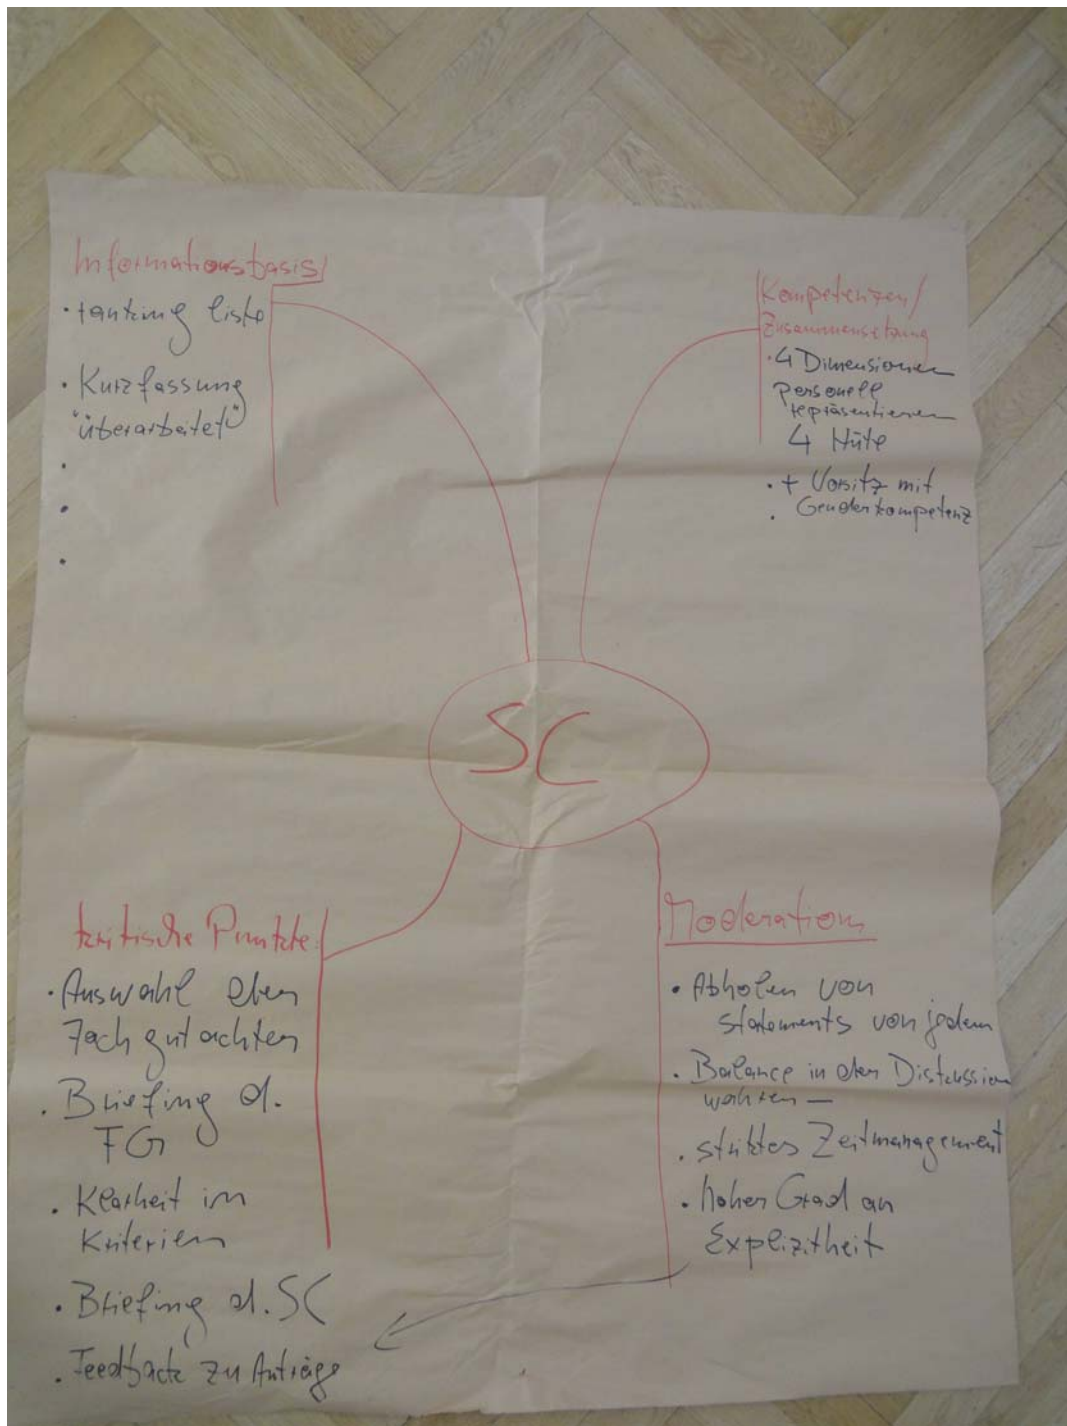 Informationsbasis
• ranking liste
• Kurzfassung
"überarbeitet"
•
•
•
Kompetenzen/
Zusammensetzung
• 4 Dimensionen
personell
repräsentieren
4 Hüte
• + Vorsitz mit
Genderkompetenz
•
SC
kritische Punkte:
• Auswahl der
Fachgutachter
• Briefing d.
FG
• Klarheit in
Kriterien
• Briefing d. SC
• Feedback zu Anträge
Moderation
• Abholen von
statements von jedem
• Balance in der Diskussion
wahren —
• striktes Zeitmanagement
• hoher Grad an
Explizitheit